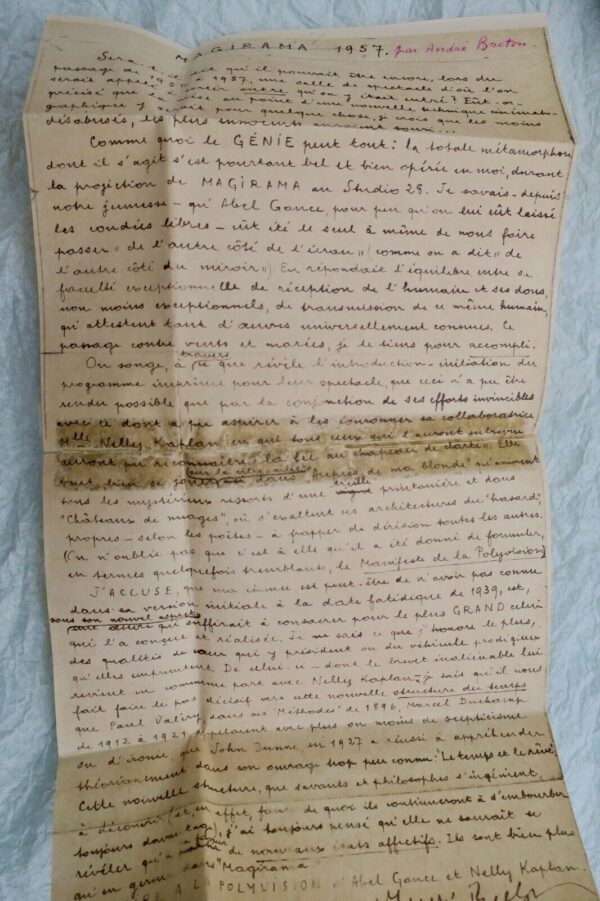 MAGIRAMA 1957. par André Breton.
Sera-t-il dit qu'il pourrait être encore, lors du
passage de 1956 à 1957, une salle de spectacle d'où l'on
serait appelé à sortir autre qu'on y était entré? Eût-on
précisé que la mise au point d'une nouvelle technique cinémato-
graphique y serait pour quelque chose, je crois que les moins
désabusés, les plus innocents auraient souri...
Comme quoi le GÉNIE peut tout: la totale métamorphose
dont il s'agit s'est pourtant bel et bien opérée en moi, durant
la projection de MAGIRAMA au Studio 28. Je savais - depuis
notre jeunesse - qu'Abel Gance, pour peu qu'on lui eût laissé
les coudées libres - eût été le seul à même de nous faire
passer " de l'autre côté de l'écran" (comme on a dit " de
l'autre côté du miroir"). En répondait l'équilibre entre sa
faculté exceptionnelle de réception de l'humain et ses dons,
non moins exceptionnels, de transmission de ce même humain,
qu'attestent tant d'œuvres universellement connues. Ce
passage contre vents et marées, je le tiens pour accompli.
On songe, à travers ce que révèle l'introduction-initiation du
programme imprimé pour leur spectacle, que ceci n'a pu être
rendu possible que par la conjonction de ses efforts invincibles
avec ce dont a pu aspirer à les couronner sa collaboratrice
Mlle Nelly Kaplan en qui tous ceux qui l'auront entrevue
auront pu reconnaître "la fée au chapeau de clarté". Elle
dans "Auprès de ma blonde" qu'animent
tous les mystérieux ressorts d'une treille printanière et dans
"Châteaux de nuages", où s'exaltent ces architectures du "hasard",
propres - selon les poètes - à frapper de dérision toutes les autres.
(On n'oublie pas que c'est à elle qu'il a été donné de formuler,
en termes quelquefois tremblants, le Manifeste de la Polyvision)
J'ACCUSE, que ma chance est peut-être de n'avoir pas connu
dans sa version initiale à la date fatidique de 1939, est,
sous son nouvel aspect
une œuvre qui suffirait à consacrer pour le plus GRAND celui
qui l'a conçue et réalisée. Je ne sais ce que j'honore le plus,
des qualités de cœur qui y président ou du véhicule prodigieux
qu'elles empruntent. De celui-ci - dont le brevet inaliénable lui
revient en commune part avec Nelly Kaplan - je sais qu'il nous
fait faire le pas décisif vers cette nouvelle structure du temps
que Paul Valéry, dans ses "Méthodes" de 1896, Marcel Duchamp
de 1912 à 1921, appelaient avec plus ou moins de scepticisme
ou d'ironie, que John Dunne en 1927 a réussi à appréhender
théoriquement dans son ouvrage trop peu connu: "Le temps et le rêve".
Cette nouvelle structure, que savants et philosophes s'ingénient
à découvrir (et, en effet, faute de quoi ils continueront à s'embourber
toujours davantage), j'ai toujours pensé qu'elle ne saurait se
révéler qu'à nouveaux états affectifs. Ils sont bien plus
qu'en germe dans "Magirama"
A LA POLYVISION d'Abel Gance et Nelly Kaplan.
André Breton